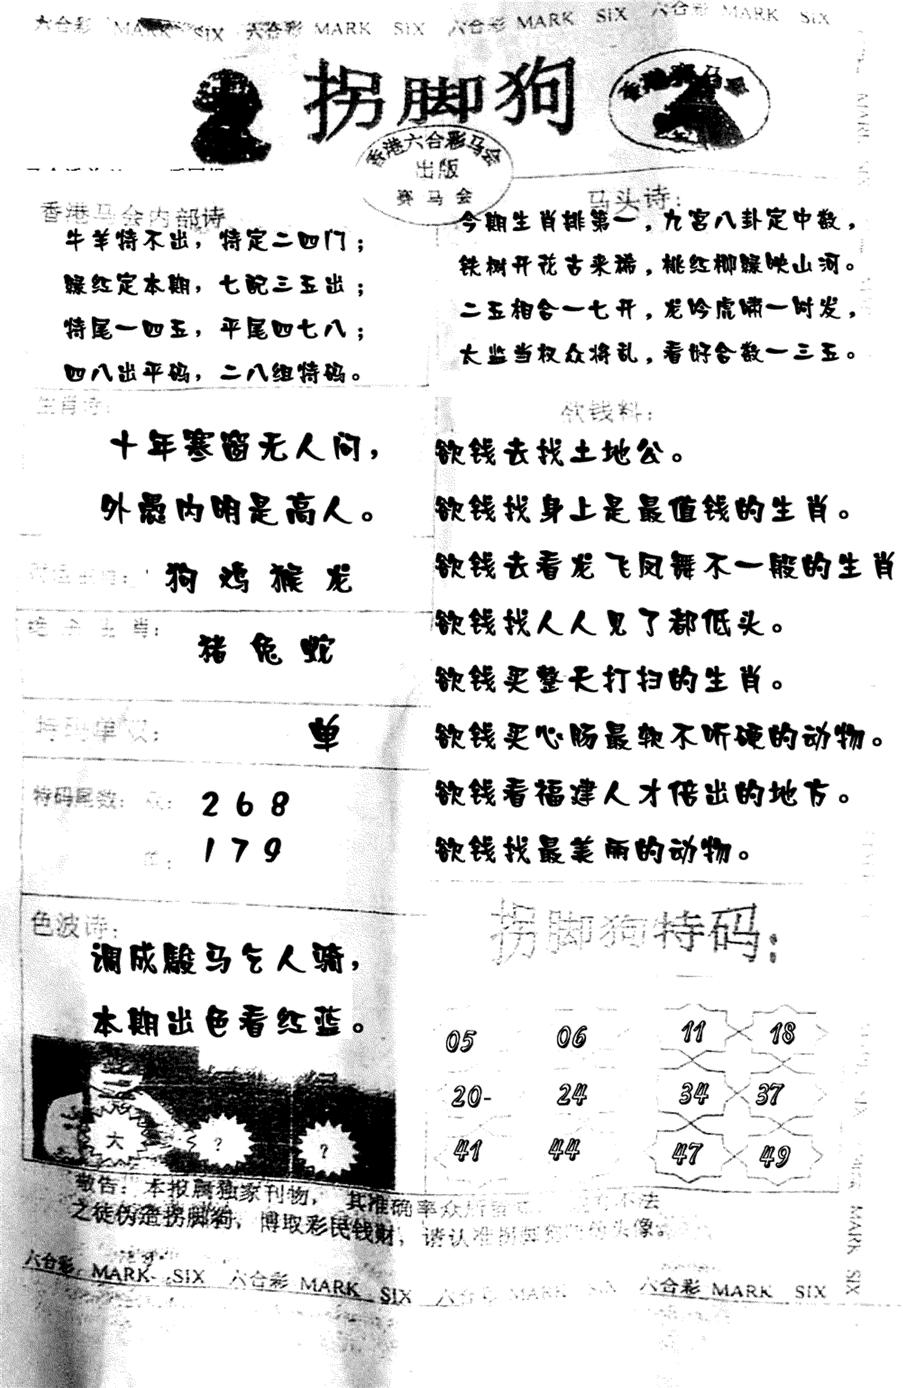 六合彩 MARK SIX 六合彩 MARK SIX 六合彩 MARK SIX 六合彩 MARK SIX
拐脚狗
香港赛马会
香港六合彩马会
出版
赛马会
香港马会内部诗
牛羊特不出，特定二四门；
绿红定本期，七配三五出；
特尾一四五，平尾四七八；
四八出平码，二八组特码。
马头诗：
今期生肖排第一，九宫八卦定中数，
铁树开花古来稀，桃红柳绿映山河。
二五相合一七开，龙吟虎啸一时发，
太监当权众将乱，看好合数一三五。
生肖诗：
十年寒窗无人问，
外愚内明是高人。
狗 鸡 猴 龙
绝杀生肖：
猪 兔 蛇
特码单双：
单
特码尾数：双：
2 6 8
单：
1 7 9
欲钱料：
欲钱去找土地公。
欲钱找身上是最值钱的生肖。
欲钱去看龙飞凤舞不一般的生肖
欲钱找人人见了都低头。
欲钱买整天打扫的生肖。
欲钱买心肠最软不听硬的动物。
欲钱看福建人才倍出的地方。
欲钱找最美丽的动物。
色波诗：
调成骏马乞人骑，
本期出色看红蓝。
大 ? ?
拐脚狗特码：
05 06 11 18
20- 24 34 37
41 44 47 49
敬告：本报属独家刊物，其准确率众所 不法
之徒伪造拐脚狗，博取彩民钱财，请认准拐脚狗 头像。
六合彩 MARK SIX 六合彩 MARK SIX 六合彩 MARK SIX 六合彩 MARK SIX
MARK SIX